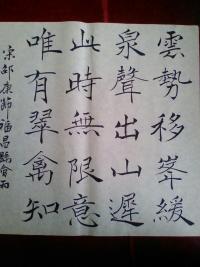 雲勢移峯緩
泉聲出山遲
此時無限意
唯有翠禽知
宋邵康節福昌縣會雨